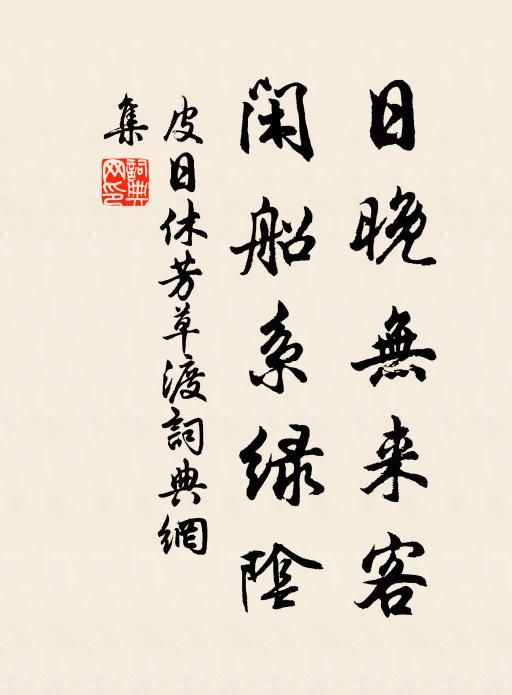 日晚無来客
闲船系绿陰
皮日休芳草渡詞典網
集
詞典
網印